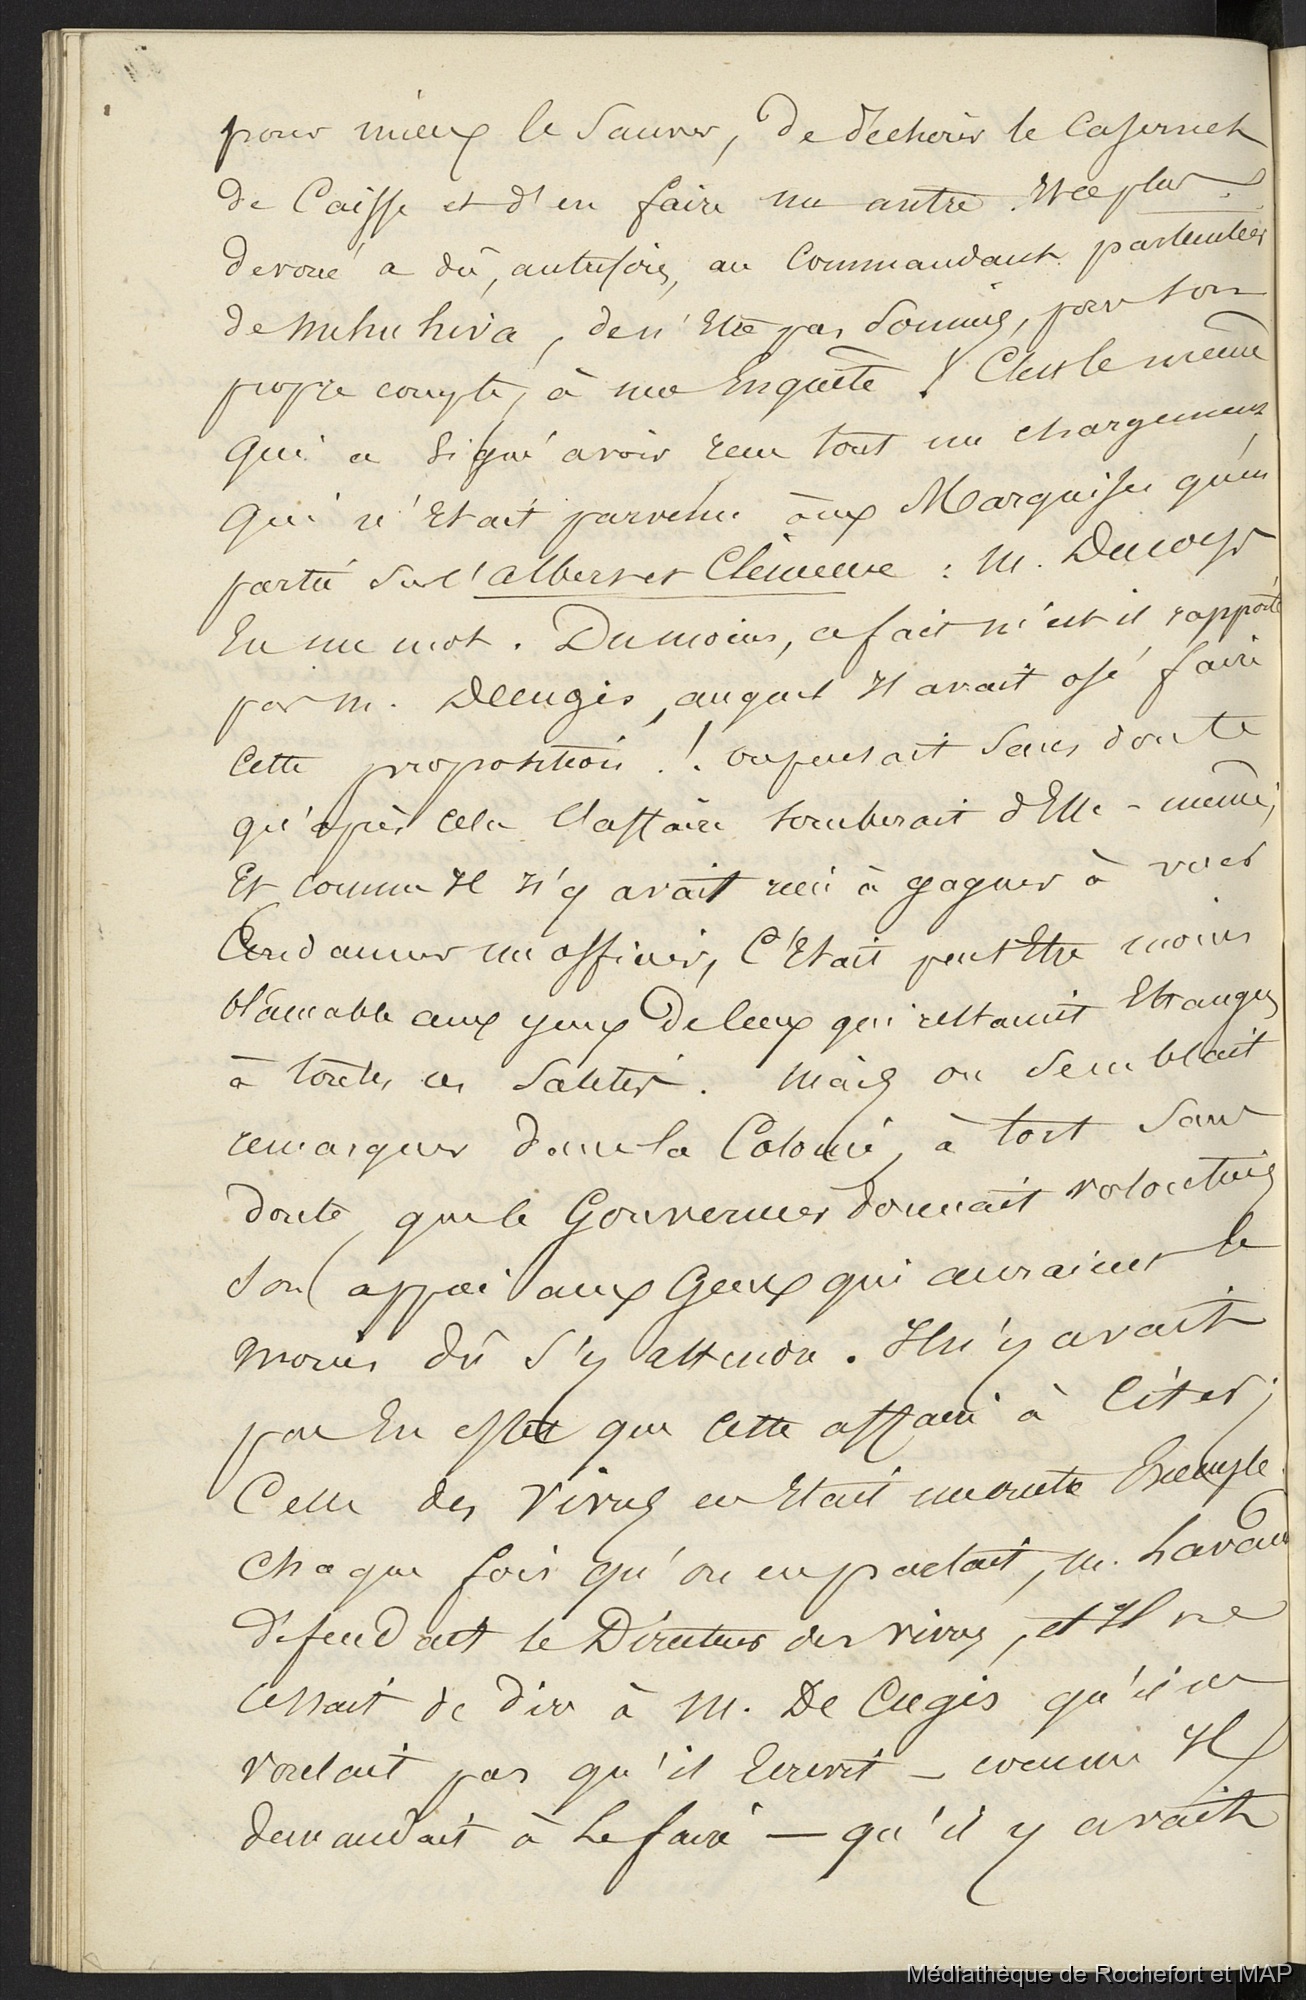 pour mieux le sauver, de déchirer le casernet
de Caisse et d'en faire un autre. Et ce plus
devoué a dû, autrefois, au Commandant particulier
de Nuhu hiva, de n'Etre pas soumis, pour son
propre compte, à une Enquête ! C'est le même
qui a signé avoir reçu tout un chargement
qui n'Etait parvenu aux Marquises qu'en
partie sur l'Albert et Clémence : M. Ducorps
En un mot. Du moins, ce fait m'est il rapporté
par M. De Cugis, auquel Il avait osé faire
cette proposition !. On pensait sans doute
qu'après cela l'affaire tomberait d'Elle-même;
Et comme Il n'y avait rien à gagner à voir
Condamner un officier, C'Etait peut Etre moins
blâmable aux yeux de ceux qui restaient Etrangers
à toutes ces saletés. Mais on semblait
remarquer dans la Colonie, à tort sans
doute, que le Gouverneur donnait volontiers
son appui aux Gens qui auraient le
moins dû s'y attendre. Il n'y avait
pas En effet que cette affaire à citer;
Celle des Vivres en Etait une autre Exemple.
Chaque fois qu'on en parlait, M. Lavaud
défendait le Directeur des vivres, et Il ne
cessait de dire à M. De Cugis qu'il ne
voulait pas qu'il Ecrivit – comme Il
demandait à le faire — qu'il y avait
Médiathèque de Rochefort et MAP